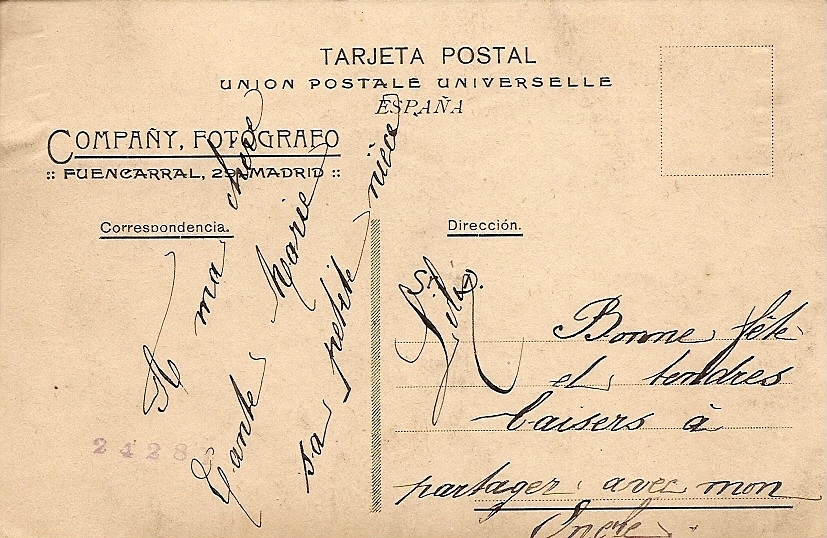 TARJETA POSTAL
UNION POSTALE UNIVERSELLE
ESPAÑA
COMPAÑY, FOTÓGRAFO
:: FUENCARRAL, 29, MADRID ::
Correspondencia.
Dirección.
A ma chère
Tante Marie
sa petite nièce
Bonne fête
et tendres
baisers à
partager avec mon
Oncle.
2428